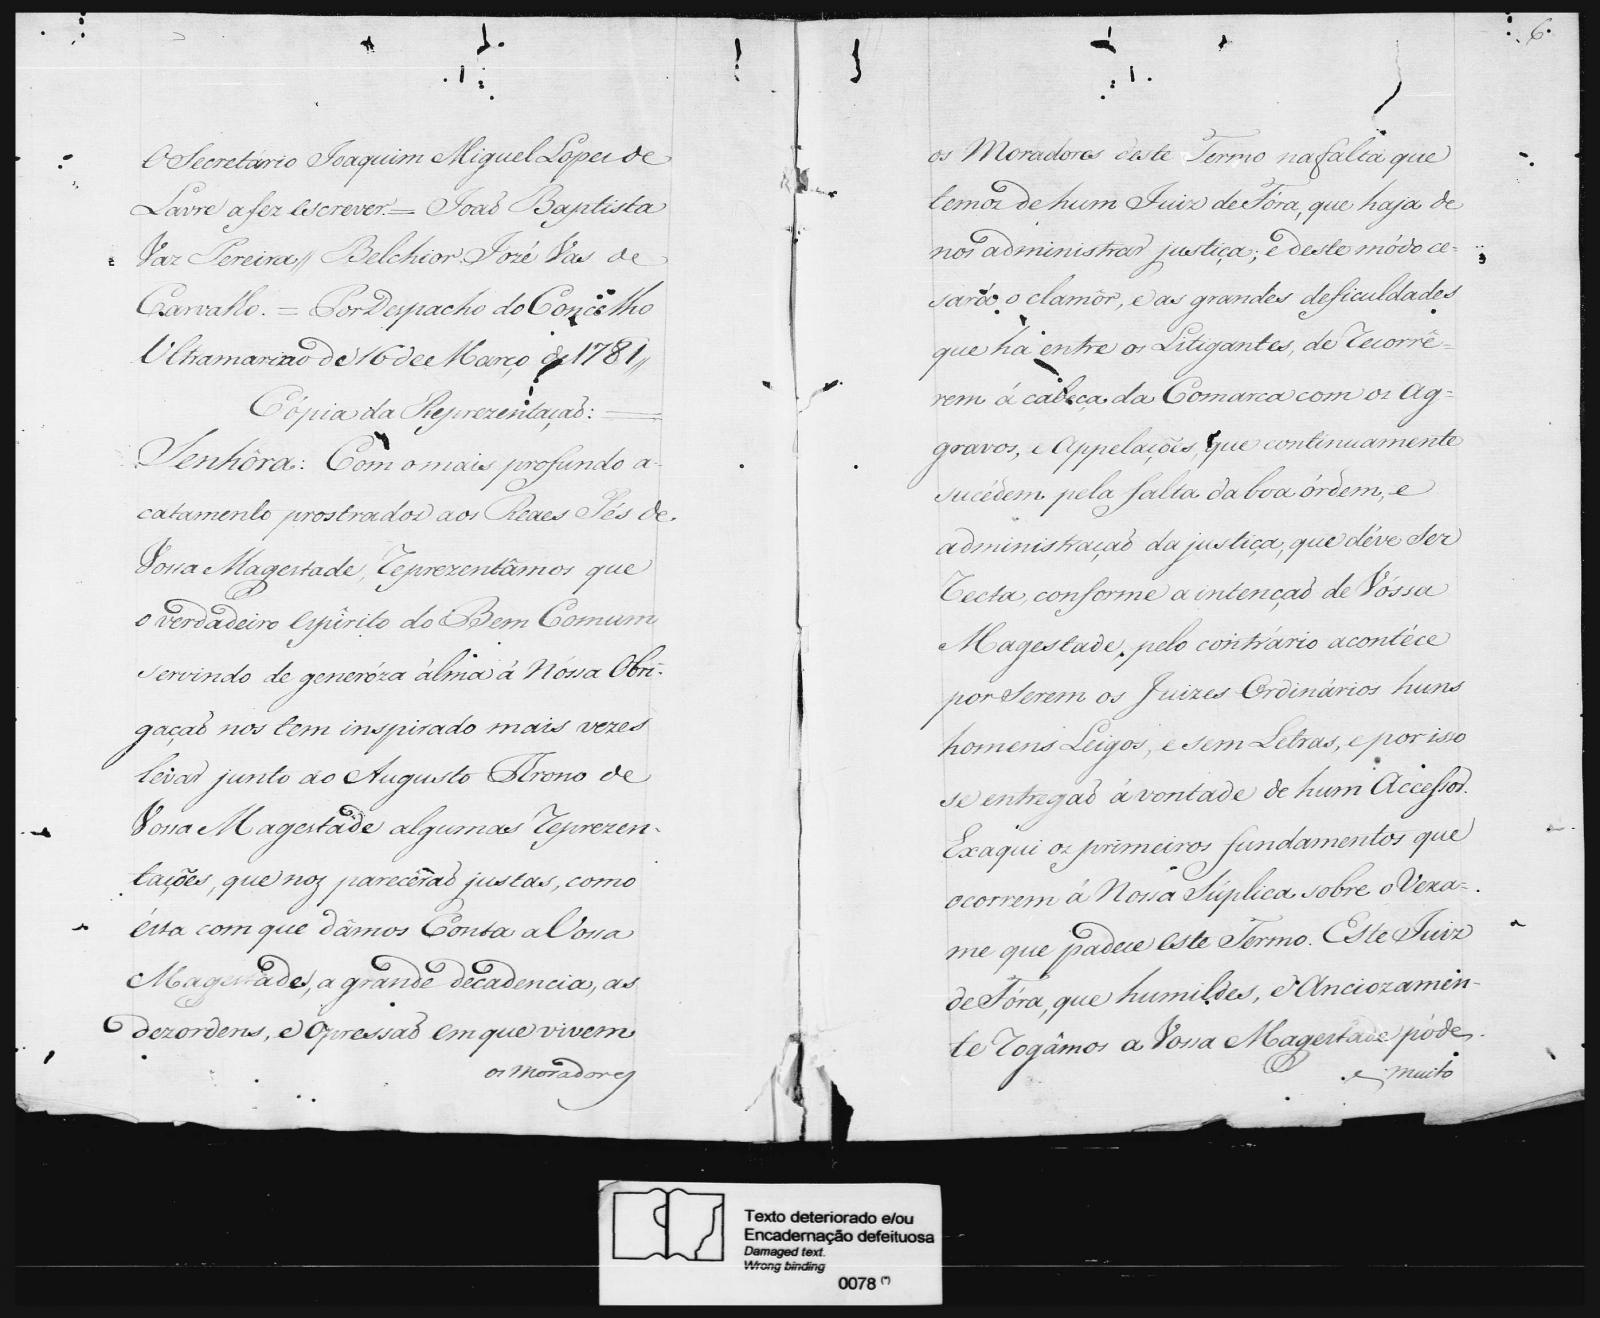 O Secretário Joaquim Miguel Lopes de
Lavre a fez escrever. = Joaõ Baptista
Vaz Pereira // Belchior Jozé Vas de
Carvalho. = Por Despacho do Concelho
Ultramarino de 16 de Março de 1781 //
Cópia da Reprezentaçaõ: =
Senhôra: Com o mais profundo a-
catamento prostrados aos Reaes Pés de
Vossa Magestade, reprezentâmos que
o verdadeiro espirito do Bem Comum
servindo de generóza álma á Nóssa Obri-
gaçaõ nos tem inspirado mais vezes
levar junto ao Augusto Throno de
Vossa Magestade algumas reprezen-
tações, que noz parecêraõ justas, como
ésta com que dâmos Conta a Vossa
Magestade, a grande decadencia, as
dezordens, e opressaõ em que vivem
os moradores
6.
os Moradores deste Termo na falta que
temos de hum Juiz de Fóra, que haja de
nos administrar justiça; e deste módo ce-
saráõ o clamôr, e as grandes deficuldades
que ha entre os Litigantes, de recorrê-
rem á cabeça da Comarca com os ag-
gravos, e appelações, que continuamente
sucédem pela falta da boa órdem, e
administraçaõ da justiça, que déve ser
recta, conforme a intençaõ de Vóssa
Magestade, pelo contrário acontéce
por serem os Juizes Ordinários huns
homens Leigos, e sem Letras, e por isso
se entregaõ á vontade de hum Accessor.
Exaqui os primeiros fundamentos que
ocorrem á Nossa Súplica sobre o Vexa-
me que padece este Termo. Este Juiz
de Fóra, que humildes, e Anciozamen-
te rogâmos a Vossa Magestade póde
muito
Texto deteriorado e/ou
Encadernação defeituosa
Damaged text.
Wrong binding
0078 (*)